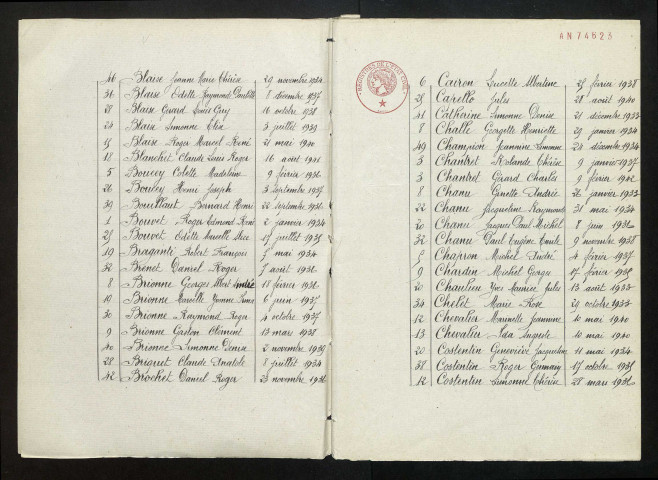 46 Blaise Jeanne Marie Thérèse 29 novembre 1934
34 Blaise Odette Raymonde Paulette 8 décembre 1937
28 Blaise Gérard Louis Guy 16 octobre 1938
24 Blaise Simonne Eliza 3 juillet 1939
15 Blaise Roger Marcel René 21 mai 1940
18 Blanchet Claude Louis Roger 16 août 1941
5 Boucey Colette Madeleine 9 février 1936
26 Bouley Henri Joseph 3 septembre 1937
39 Bouillaut Bernard Henri 22 septembre
1 Bouvet Roger Edmond René 2 janvier 1934
25 Bouvet Odette Marcelle 17 juillet 1935
19 Braganti Robert François 7 mai 1934
32 Brenet Daniel Roger 7 août
8 Brionne Georges Albert André 18 février
10 Brionne Marielle Yvonne 6 juin 1937
30 Brionne Raymond Roger 4 octobre 1937
9 Brionne Gaston Clément 13 mars 1938
40 Brionne Simonne Denise 2 novembre 1939
28 Briquet Claude Anatole 8 juillet 1934
42 Brochet Daniel Roger 23 novembre
AN 74523
6 Cairon Lucette Martine 25 février 1938
25 Carello Jules 28 août 1940
41 Catharine Simonne Denise 21 décembre 1933
8 Challe Georgette Henriette 29 janvier 1934
49 Champion Jeannine Simonne 24 décembre 1934
3 Chantret Rolande Thérèse 9 janvier 1937
3 Chantret Gérard Charles 9 février 1942
8 Chanu Ginette Andrée 26 janvier 1933
22 Chanu Jacqueline Raymonde 31 mai 1934
20 Chanu Jacques Paul Michel 8 juin
32 Chanu Paul Eugène Emile 9 novembre 1938
5 Chapron Michel André 4 février 1937
9 Chardin Michel Georges 17 février
20 Chaulieu Yves Maurice Jules 13 août 1933
34 Chelet Marie Rose 29 octobre 1933
12 Chevalier Marinette Jeannine 10 mai 1940
13 Chevalier Auguste 10 mai 1940
20 Costentin Geneviève Jacqueline 11 mai 1934
38 Costentin Roger Germain 17 octobre
12 Costentin Simonne Thérèse 28 mars